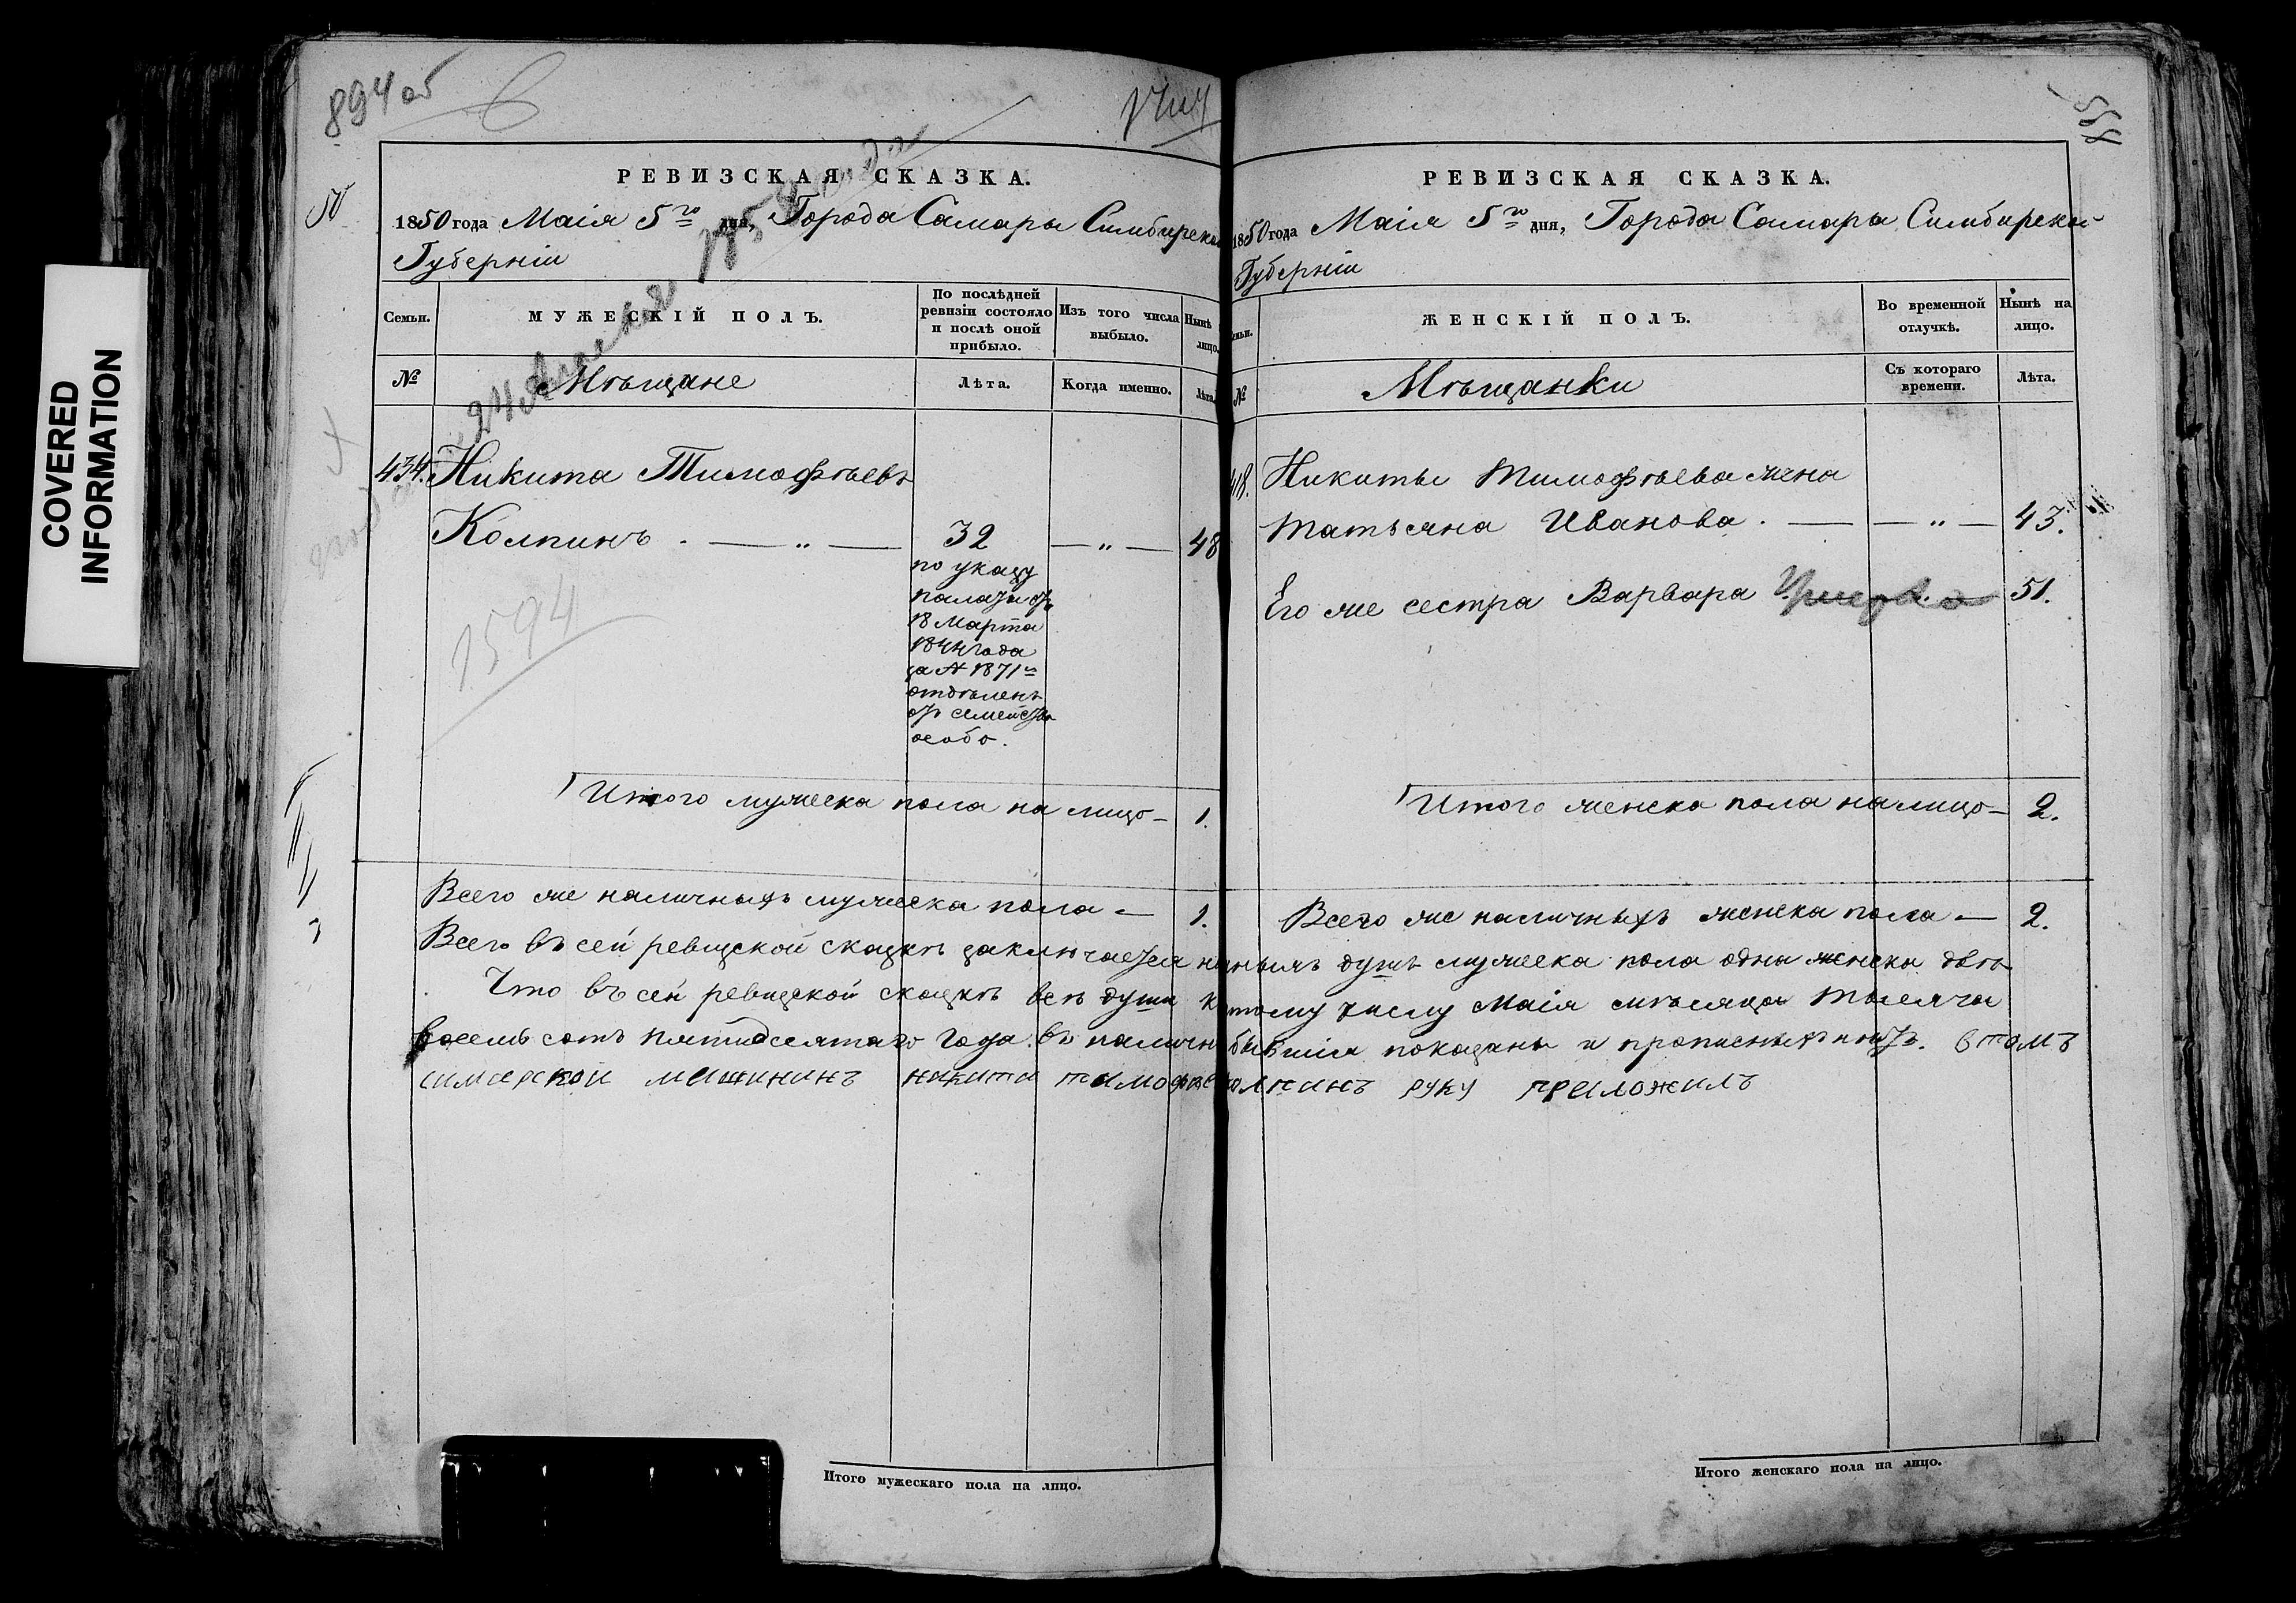 COVERED
INFORMATION
894 об
РЕВИЗСКАЯ СКАЗКА.
1850 года Маія 5го дня, Города Самары Симбирской
Губерніи
Семьи.
МУЖЕСКІЙ ПОЛЪ.
По послѣдней
ревизіи состояло
и послѣ оной
прибыло.
Изъ того числа
выбыло.
Нынѣ
лицо.
№
Мѣщане
Лѣта.
Когда именно.
Лѣта.
434. Никита Тимофѣевъ
Колпинъ . — „ — 32 — „ — 48
по указу
палаты отъ
18 Марта
1844 года
за № 1871
отдѣленъ
отъ семейства
особо.
1594
Итого мужеска пола на лицо — 1.
Всего же наличныхъ мужеска пола — 1.
РЕВИЗСКАЯ СКАЗКА.
1850 года Маія 5го дня, Города Самары Симбирской
Губерніи
ЖЕНСКІЙ ПОЛЪ.
Во временной
отлучкѣ.
Нынѣ на
лицо.
№
Мѣщанки
Съ котораго
времени.
Лѣта.
Никиты Тимофѣева жена
Татьяна Иванова . — — „ — 43.
Его же сестра Варвара 51.
Итого женска пола на лицо — 2.
Всего же наличныхъ женска пола — 2.
Всего въ сей ревизской сказкѣ заключается душъ мужеска пола одна женска двѣ
Что въ сей ревизской сказкѣ всѣ души к тому числу Маія мѣсяца тысяча
восемь сотъ пятидесятаго года въ показаны и прописныхъ нѣтъ. в томъ
самарской мещинин никита руку приложилъ
Итого мужескаго пола на лицо.
Итого женскаго пола на лицо.